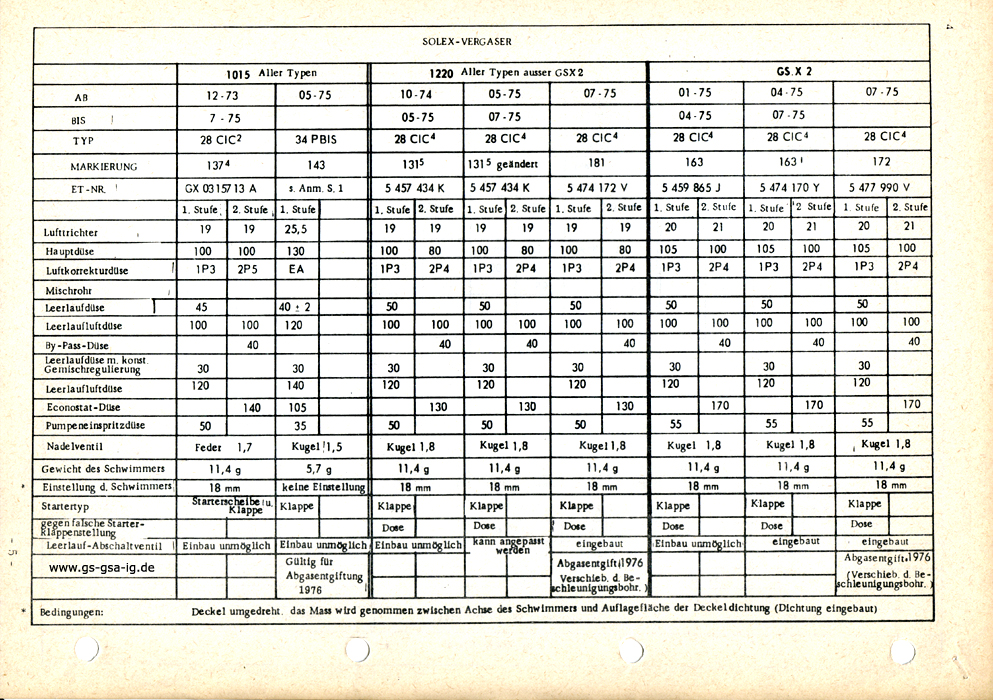 SOLEX-VERGASER
1015 Aller Typen 1220 Aller Typen ausser GSX2 GS.X 2
AB 12-73 05-75 10-74 05-75 07-75 01-75 04-75 07-75
BIS 7-75 05-75 07-75 04-75 07-75
TYP 28 CIC² 34 PBIS 28 CIC⁴ 28 CIC⁴ 28 CIC⁴ 28 CIC⁴ 28 CIC⁴ 28 CIC⁴
MARKIERUNG 137⁴ 143 131⁵ 131⁵ geändert 181 163 163¹ 172
ET-NR. GX 0315713 A s. Anm. S. 1 5 457 434 K 5 457 434 K 5 474 172 V 5 459 865 J 5 474 170 Y 5 477 990 V
1. Stufe 2. Stufe 1. Stufe 1. Stufe 2. Stufe 1. Stufe 2. Stufe 1. Stufe 2. Stufe 1. Stufe 2. Stufe 1. Stufe 2. Stufe 1. Stufe 2. Stufe
Lufttrichter 19 19 25,5 19 19 19 19 19 19 20 21 20 21 20 21
Hauptdüse 100 100 130 100 80 100 80 100 80 105 100 105 100 105 100
Luftkorrekturdüse 1P3 2P5 EA 1P3 2P4 1P3 2P4 1P3 2P4 1P3 2P4 1P3 2P4 1P3 2P4
Mischrohr
Leerlaufdüse 45 40 ± 2 50 50 50 50 50 50
Leerlaufluftdüse 100 100 120 100 100 100 100 100 100 100 100 100 100 100 100
By-Pass-Düse 40 40 40 40 40 40 40
Leerlaufdüse m. konst.
Gemischregulierung 30 30 30 30 30 30 30 30
Leerlaufluftdüse 120 140 120 120 120 120 120 120
Econostat-Düse 140 105 130 130 130 170 170 170
Pumpeneinspritzdüse 50 35 50 50 50 55 55 55
Nadelventil Feder 1,7 Kugel 1,5 Kugel 1,8 Kugel 1,8 Kugel 1,8 Kugel 1,8 Kugel 1,8 Kugel 1,8
Gewicht des Schwimmers 11,4 g 5,7 g 11,4 g 11,4 g 11,4 g 11,4 g 11,4 g 11,4 g
* Einstellung d. Schwimmers 18 mm keine Einstellung 18 mm 18 mm 18 mm 18 mm 18 mm 18 mm
Startertyp Starterscheibe u. Klappe Klappe Klappe Klappe Klappe Klappe Klappe Klappe
gegen falsche Starter-
klappenstellung Dose Dose Dose Dose Dose Dose
Leerlauf-Abschaltventil Einbau unmöglich Einbau unmöglich Einbau unmöglich kann angepasst werden eingebaut Einbau unmöglich eingebaut eingebaut
www.gs-gsa-ig.de Gültig für Abgasentgiftung 1976 Abgasentgift.1976 Verschieb. d. Be-schleunigungsbohr. ) Abgasentgift.1976 (Verschieb. d. Be-schleunigungsbohr. )
* Bedingungen: Deckel umgedreht. das Mass wird genommen zwischen Achse des Schwimmers und Auflagefläche der Deckeldichtung (Dichtung eingebaut)